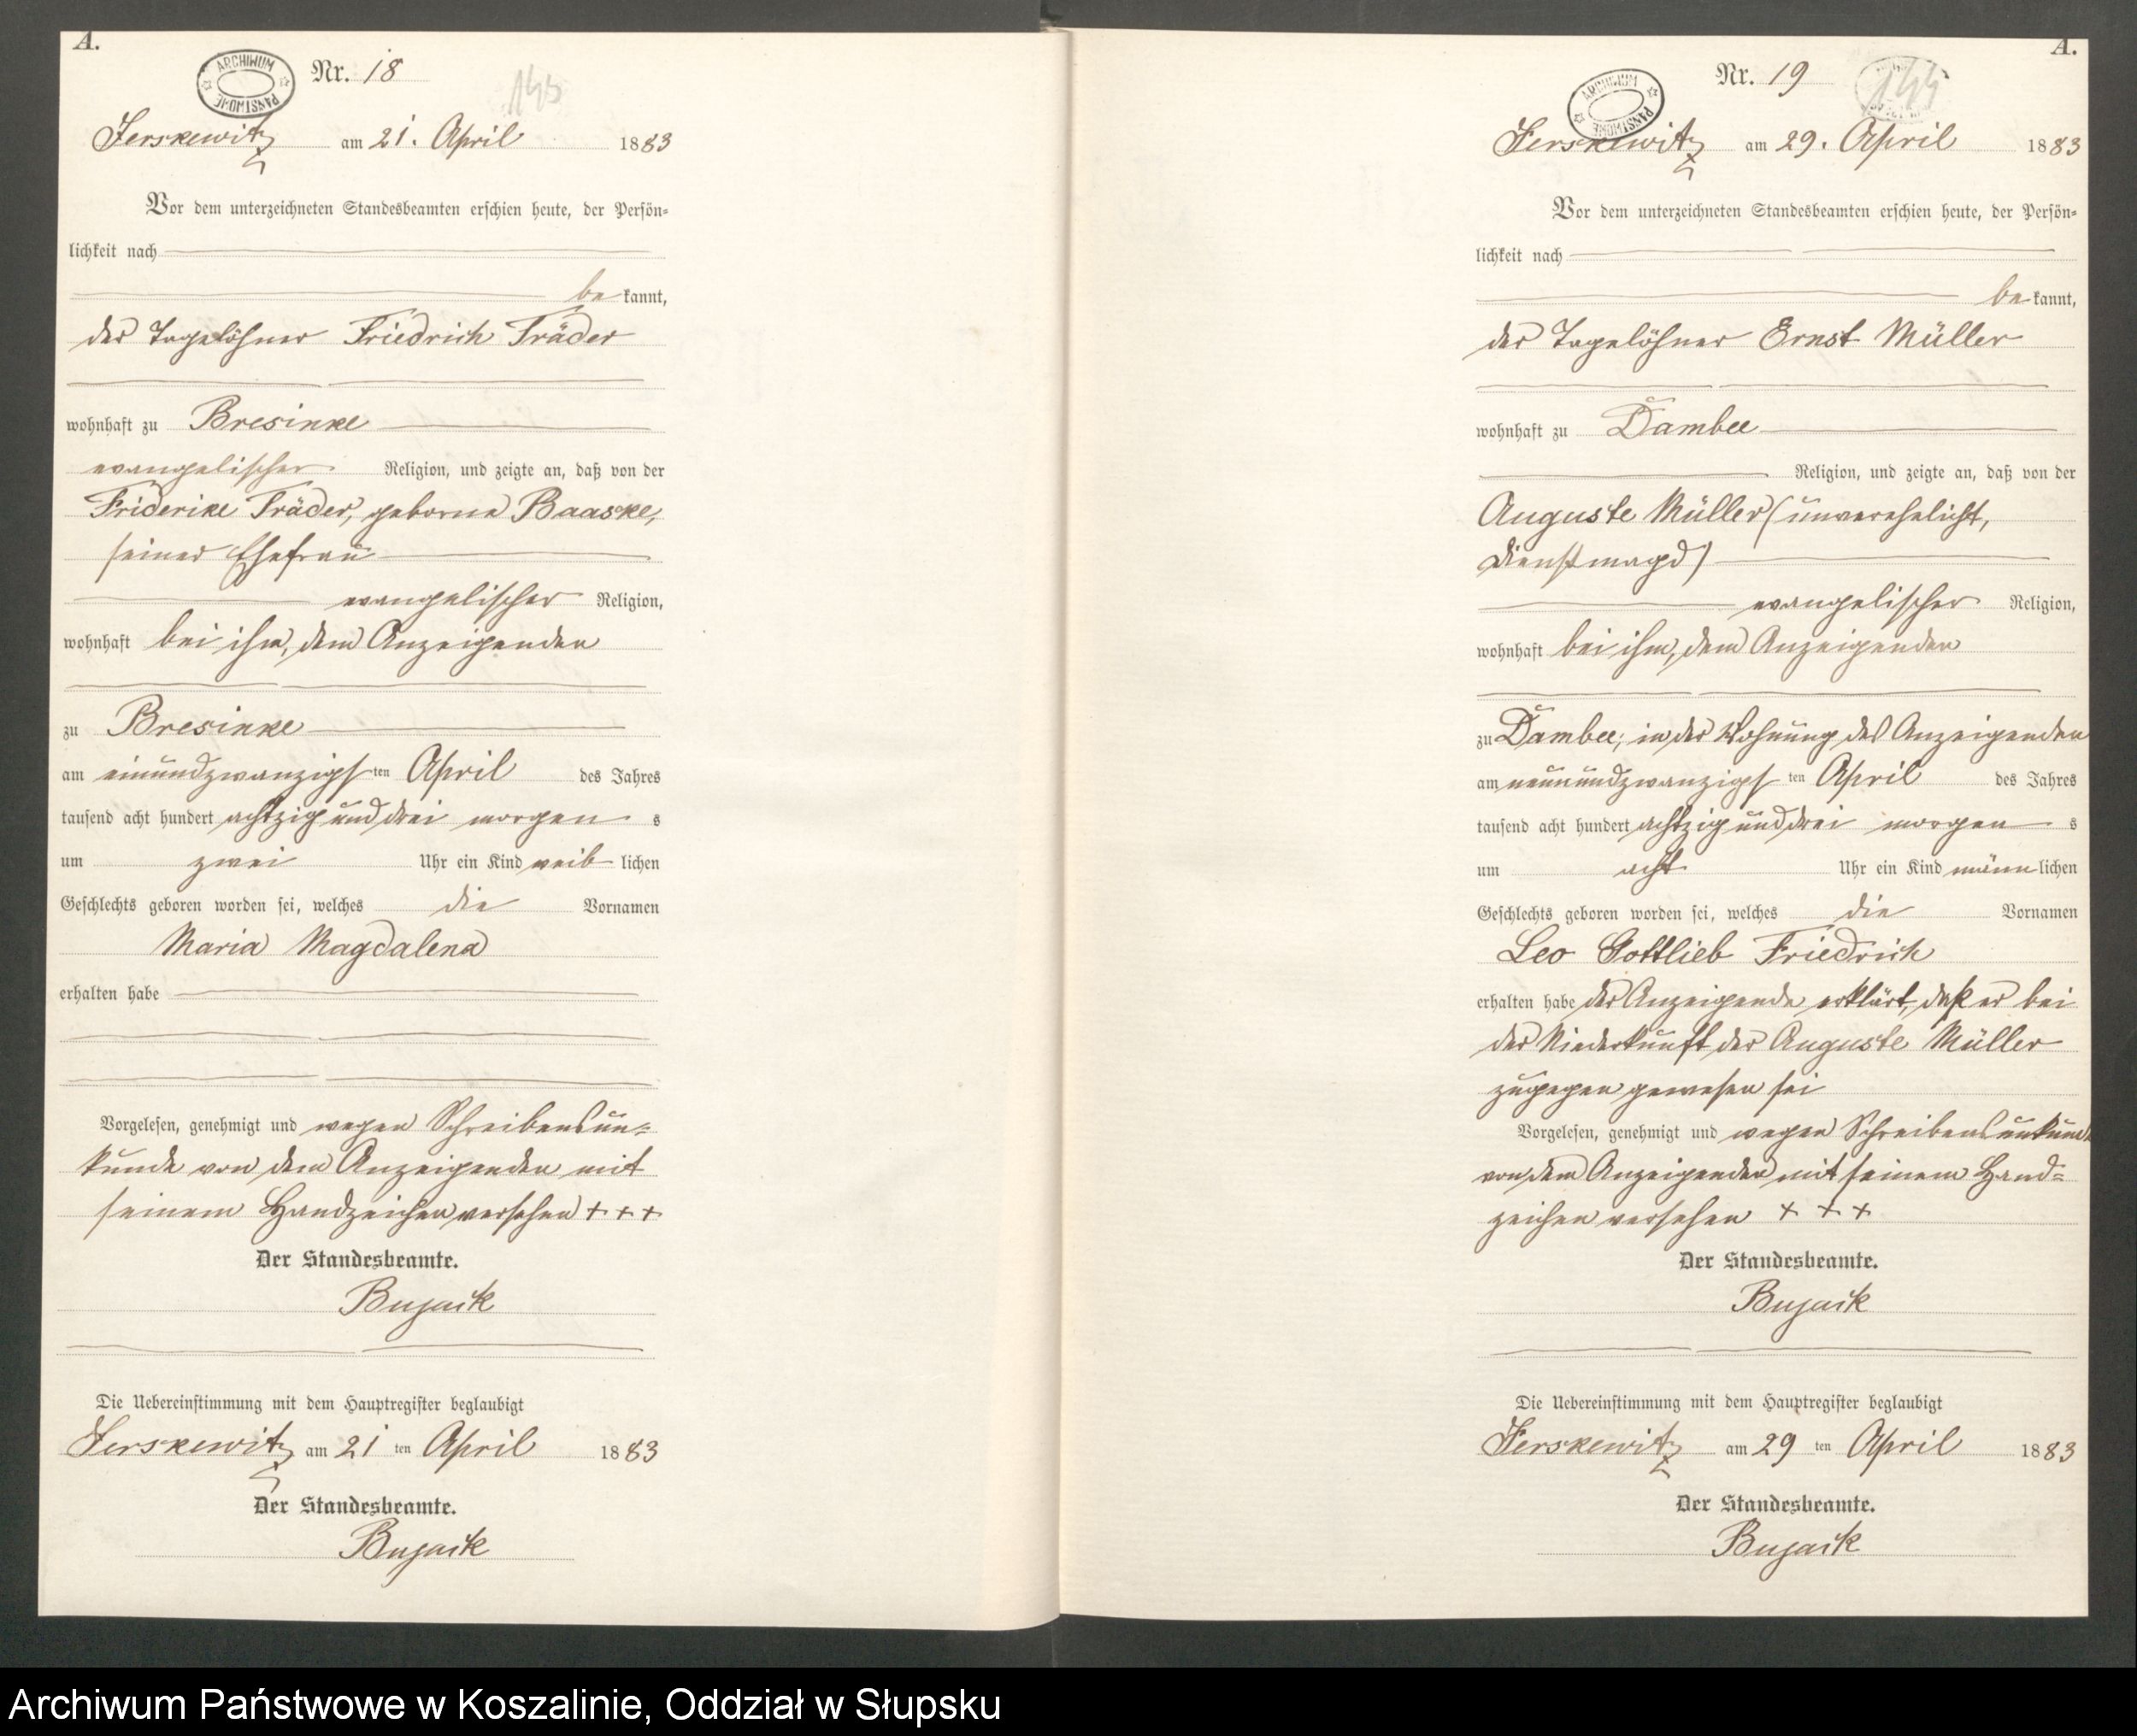 A.
ARCHIWUM PAŃSTWOWE
Nr. 18
145
Jerskewitz am 21. April 1883
Vor dem unterzeichneten Standesbeamten erschien heute, der Persön-
lichkeit nach
be kannt,
der Tagelöhner Friedrich Träder
wohnhaft zu Bresinke
evangelischer Religion, und zeigte an, daß von der
Friderike Träder, geborne Baaske,
seiner Ehefrau
evangelischer Religion,
wohnhaft bei ihm, dem Anzeigenden
zu Bresinke
am einundzwanzigsten April des Jahres
tausend acht hundert achtzig und drei morgen s
um zwei Uhr ein Kind weib lichen
Geschlechts geboren worden sei, welches die Vornamen
Maria Magdalena
erhalten habe
Vorgelesen, genehmigt und wegen Schreibensun-
kunde von dem Anzeigenden mit
seinem Handzeichen versehen + + +
Der Standesbeamte.
Bujack
Die Uebereinstimmung mit dem Hauptregister beglaubigt
Jerskewitz am 21 ten April 1883
Der Standesbeamte.
Bujack
A.
ARCHIWUM PAŃSTWOWE
Nr. 19
144
Jerskewitz am 29. April 1883
Vor dem unterzeichneten Standesbeamten erschien heute, der Persön-
lichkeit nach
be kannt,
der Tagelöhner Ernst Müller
wohnhaft zu Dambee
Religion, und zeigte an, daß von der
Auguste Müller (unverehelicht,
Dienstmagd)
evangelischer Religion,
wohnhaft bei ihm, dem Anzeigenden
zu Dambee, in der Wohnung des Anzeigenden
am neunundzwanzigsten April des Jahres
tausend acht hundert achtzig und drei morgen s
um acht Uhr ein Kind männ lichen
Geschlechts geboren worden sei, welches die Vornamen
Leo Gottlieb Friedrich
erhalten habe der Anzeigende erklärt, daß er bei
der Niederkunft der Auguste Müller
zugegen gewesen sei
Vorgelesen, genehmigt und wegen Schreibensunkunde
von dem Anzeigenden mit seinem Hand-
zeichen versehen + + +
Der Standesbeamte.
Bujack
Die Uebereinstimmung mit dem Hauptregister beglaubigt
Jerskewitz am 29 ten April 1883
Der Standesbeamte.
Bujack
Archiwum Państwowe w Koszalinie, Oddział w Słupsku